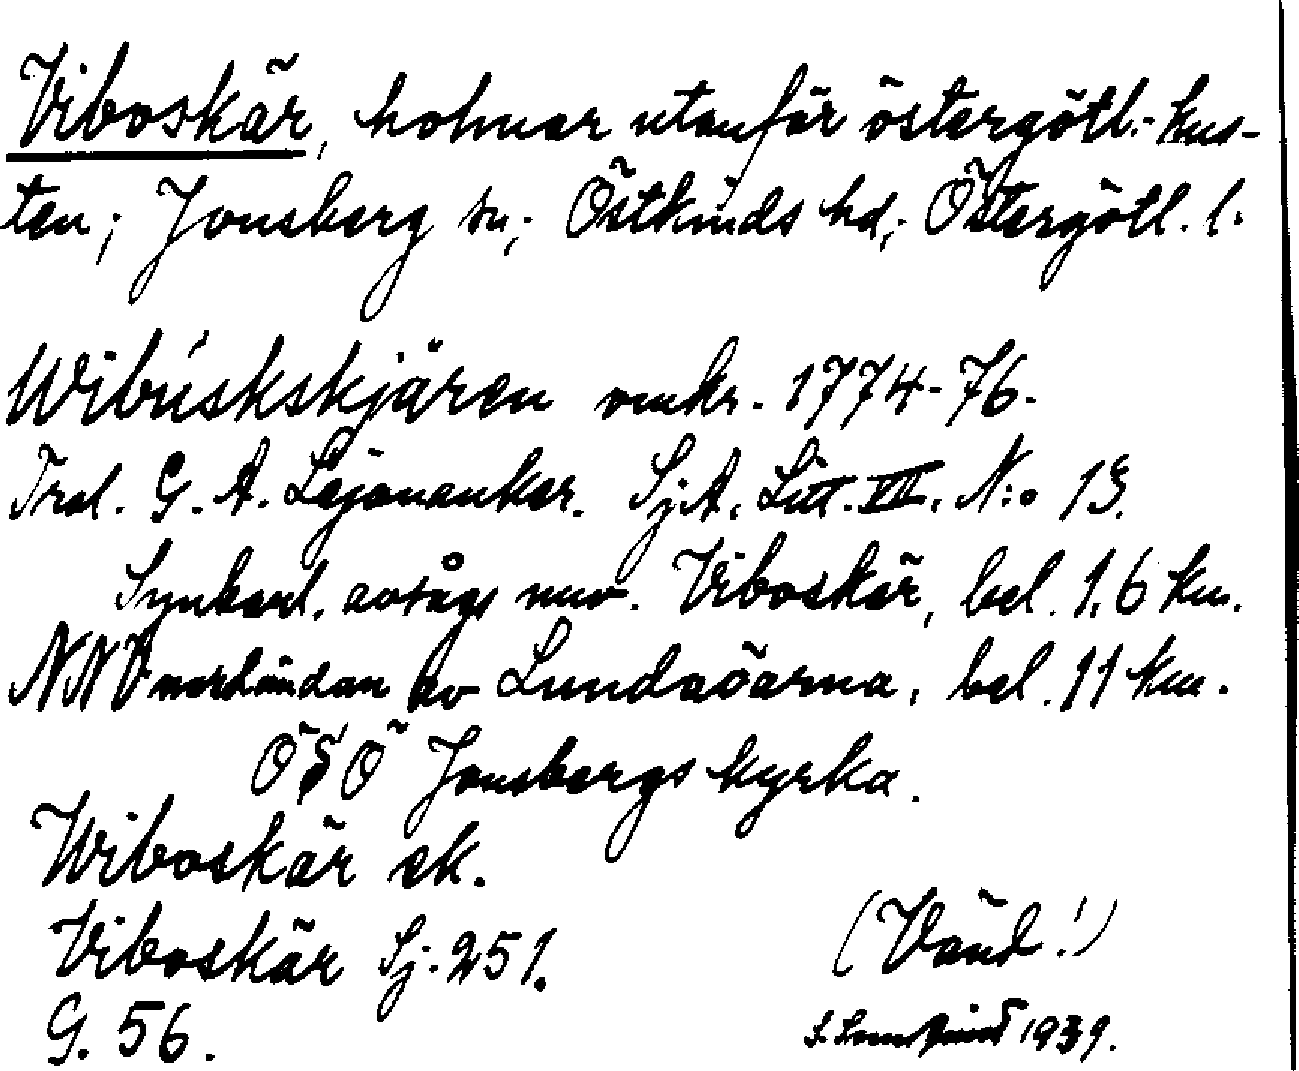 Viboskär, holmar utanför östergötl.-kus-
ten; Jonsberg sn; Östkinds hd; Östergötl. l.
Wibúskskjären omkr. 1774-76.
Trol. G. A. Lejonanker. Sj.A. Litt. VII. N:o 13.
Synbarl. avságs nuv. Viboskär, bel. 1,6 km.
NNV av Lundaöarna, bel. 11 km.
ÖSÖ Jonsbergs kyrka.
Wiboskär ek.
Viboskär Sj. 251.
G. 56.
(Vänd!)
1939.